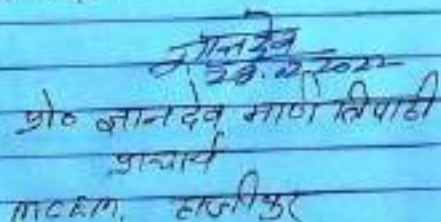 ज्ञानदेव
28.02.2022
प्रो० ज्ञानदेव मणि त्रिपाठी
प्राचार्य
MCEM, हाजीपुर